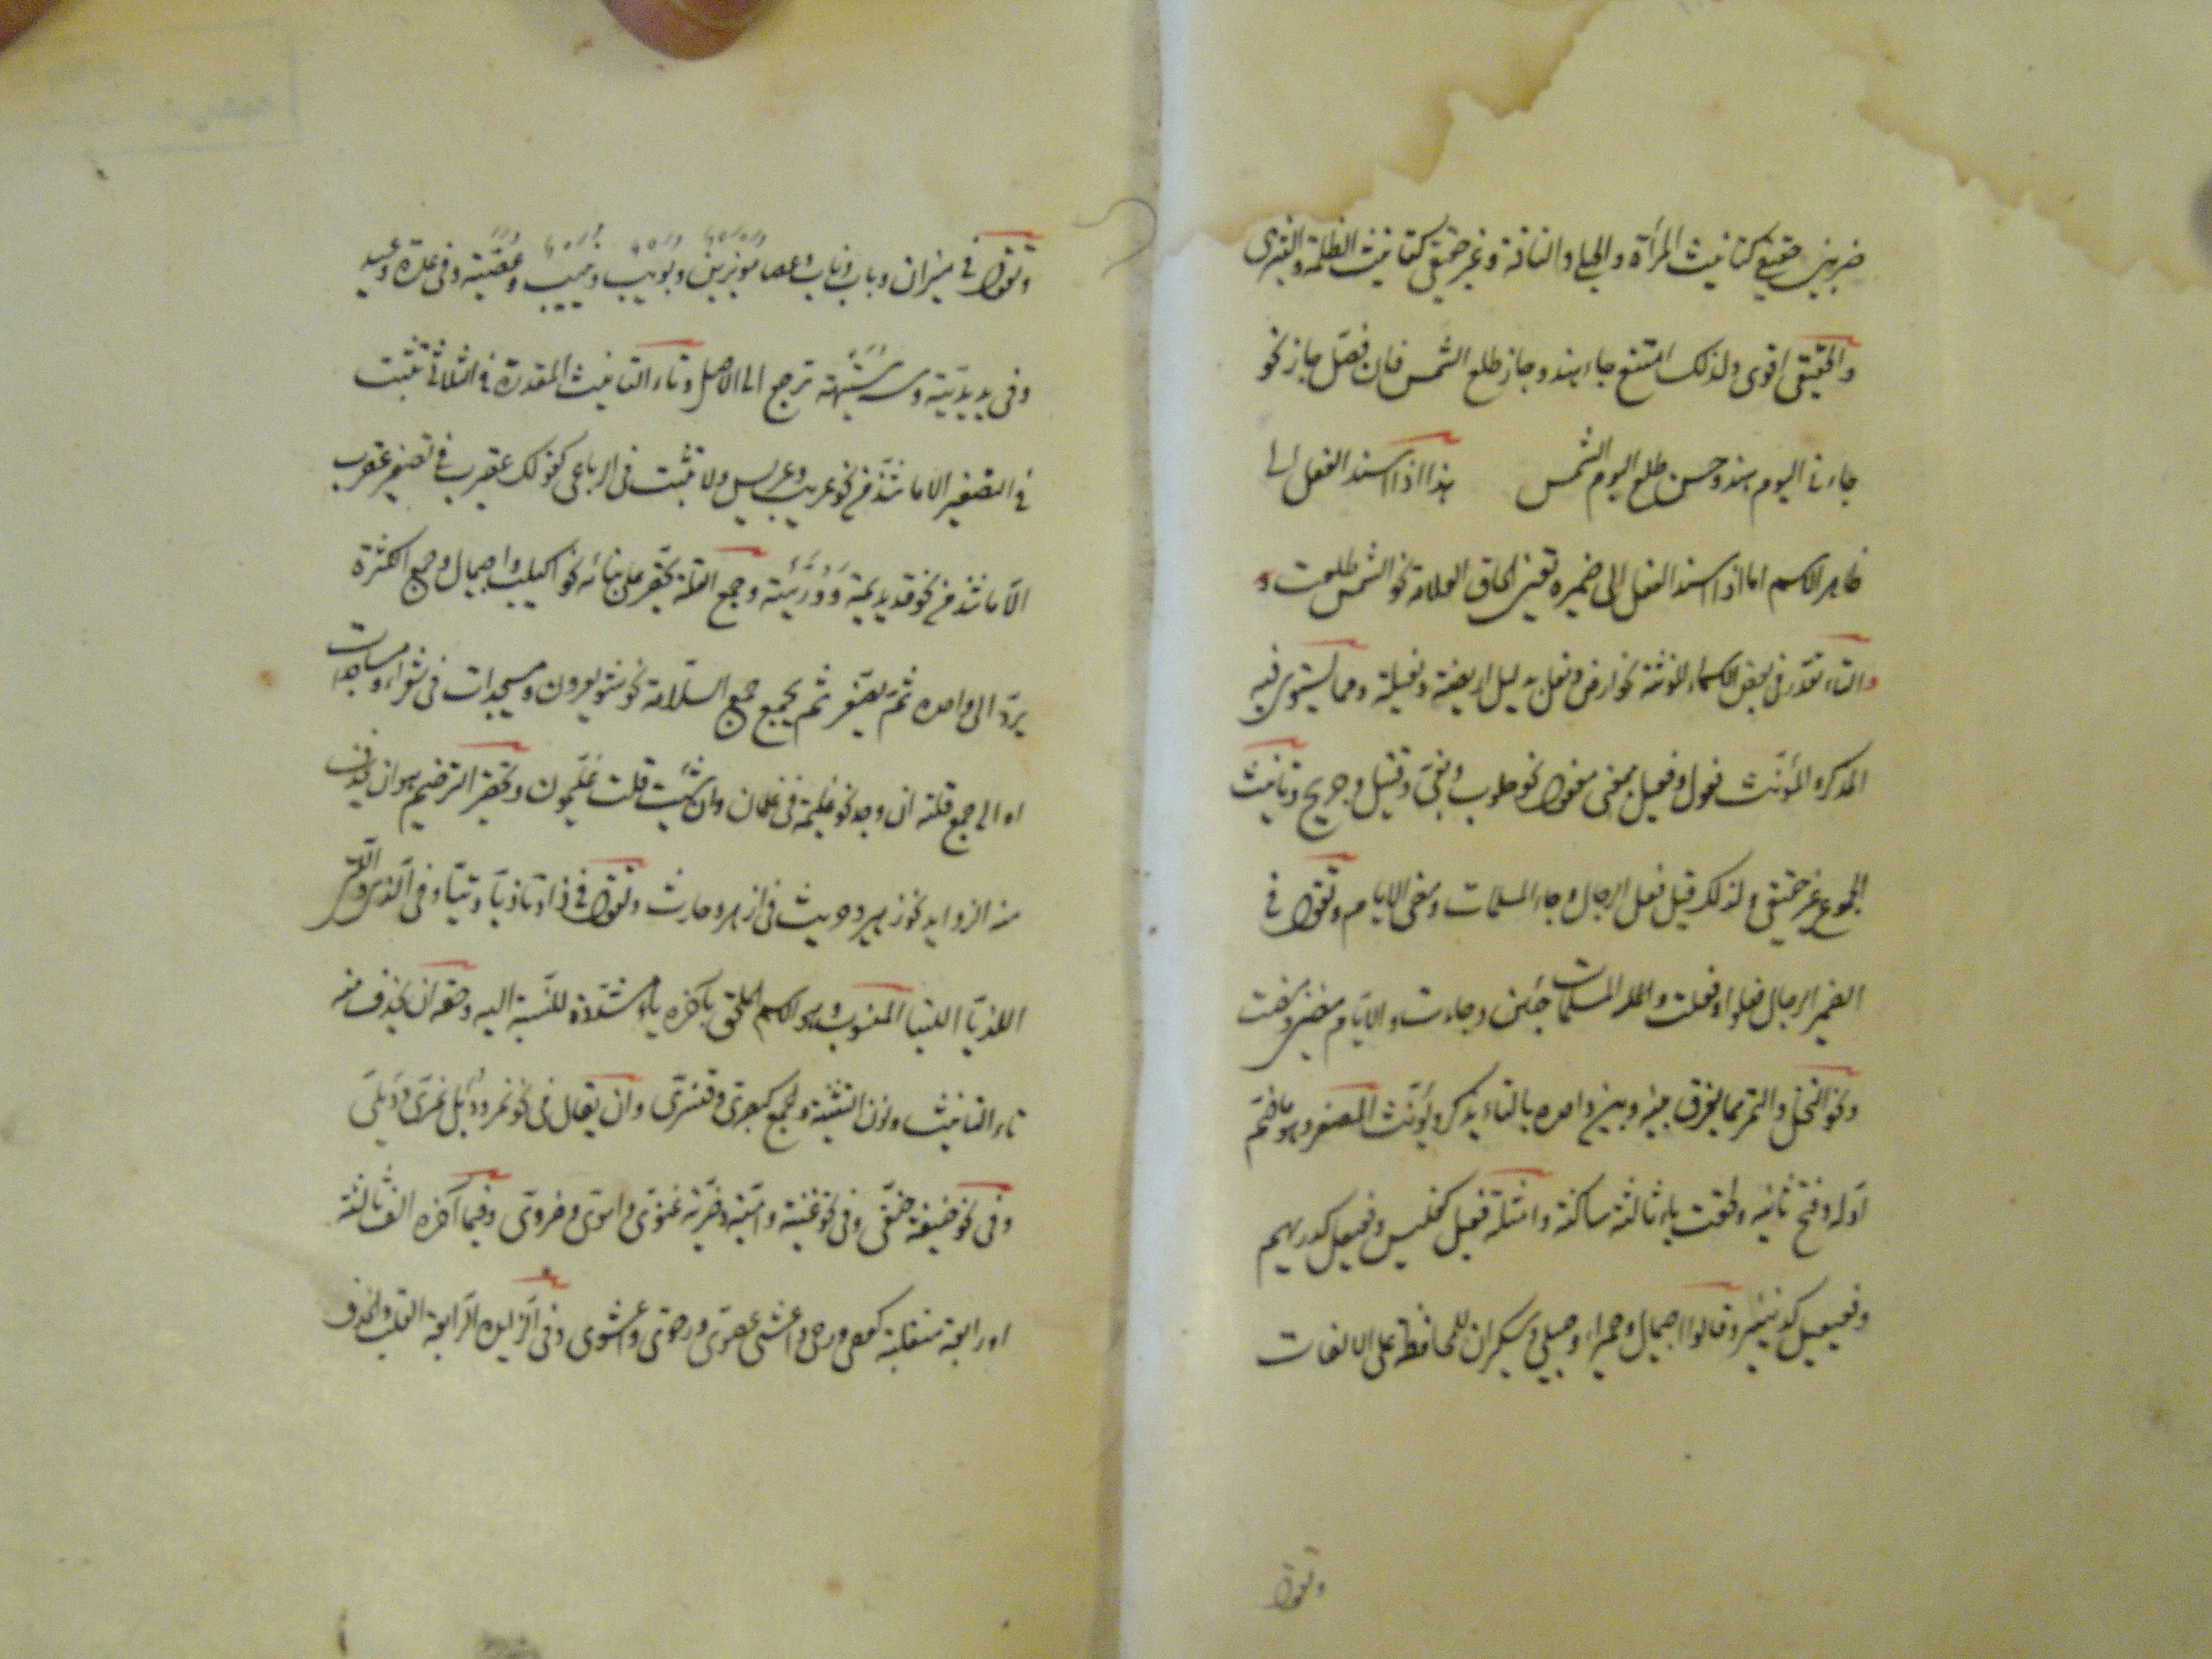 ضربين حقيقي كتانيث المرأة والحبلى والناقة وغير حقيقي كتانيث الظلمة والبشرى
والحقيقي اقوى ولذلك امتنع جاء هند وجاز طلع الشمس فان فصل جاز نحو
جاءنا اليوم هند وحسن طلع اليوم الشمس هذا اذا اسند الفعل الى
ظاهر الاسم اما اذا اسند الفعل الى ضميره تعين الحاق العلامة نحو الشمس طلعت
والتاء تقدر في بعض الاسماء المونثة نحو ارض ونعل بدليل اريضة ونعيلة ومما يستوى فيه
المذكر والمؤنث فعول وفعيل بمعنى مفعول نحو حلوب وبغي وقتيل وجريح وتانيث
الجموع غير حقيقي ولذلك قيل فعل الرجال وجاء المسلمات ومضى الايام وتقول في
الضمير الرجال فعلوا وفعلت والمسلمات جئن وجاءت والايام مضين ومضت
ونحو النخل والتمر مما يفرق بينه وبين واحده بالتاء يذكر ويؤنث المصغر وهو ما ضم
اوله وفتح ثانيه ولحقت ياء ثالثة ساكنة وامثلته فعيل كفليس وفعيعل كدريهم
وفعيعيل كدنينير وقالوا اجيمال وحميراء وحبيلى وسكيران للمحافظة على الالفات
وتقول
وتقول في ميزان وباب وناب وعصا مويزين وبويب ونييب وعصية وفى عدة وعيد
وفى يد يدية و ستيهة ترجع الى الاصل وتاء التانيث المقدرة في الثلاثي تثبت
في التصغير الا ما شذ من نحو عريب وعريس ولا تثبت في الرباعى كقولك عقيرب في تصغير عقرب
الا ما شذ من نحو قديديمة ووريئة وجمع القلة يحقر على بنائه نحو اكيلب واجيمال وجمع الكثرة
يرد الى واحده ثم يصغر ثم يجمع جمع السلامة نحو شويعرون ومسيجدات في شعراء ومساجد
او الى جمع قلته ان وجد نحو غليمة في غلمان وان شئت قلت غليمون وتحقير الترخيم هو ان يحذف
منه الزوايد نحو زهير وحريث في ازهر وحارث وتقول في ذا وتا ذيا وتيا وفى الذي والتي
اللذيا اللتيا المنسوب هو الاسم الملحق باخره ياء مشددة للنسبة اليه وحقه ان يحذف منه
تاء التانيث ونون التثنية والجمع كبصرى وقنسرى وان يقال في نحو نمر ودئل نمرى ودئلى
وفى نحو حنيفة حنفى وفى نحو غنية وامية وضرية غنوى واموى وضروى وفيما اخره الف ثالثة
او رابعة منقلبة كعصى ورحى واعشى عصوى ورحوى واعشوى وفى الزايدة الرابعة القلب والحذف